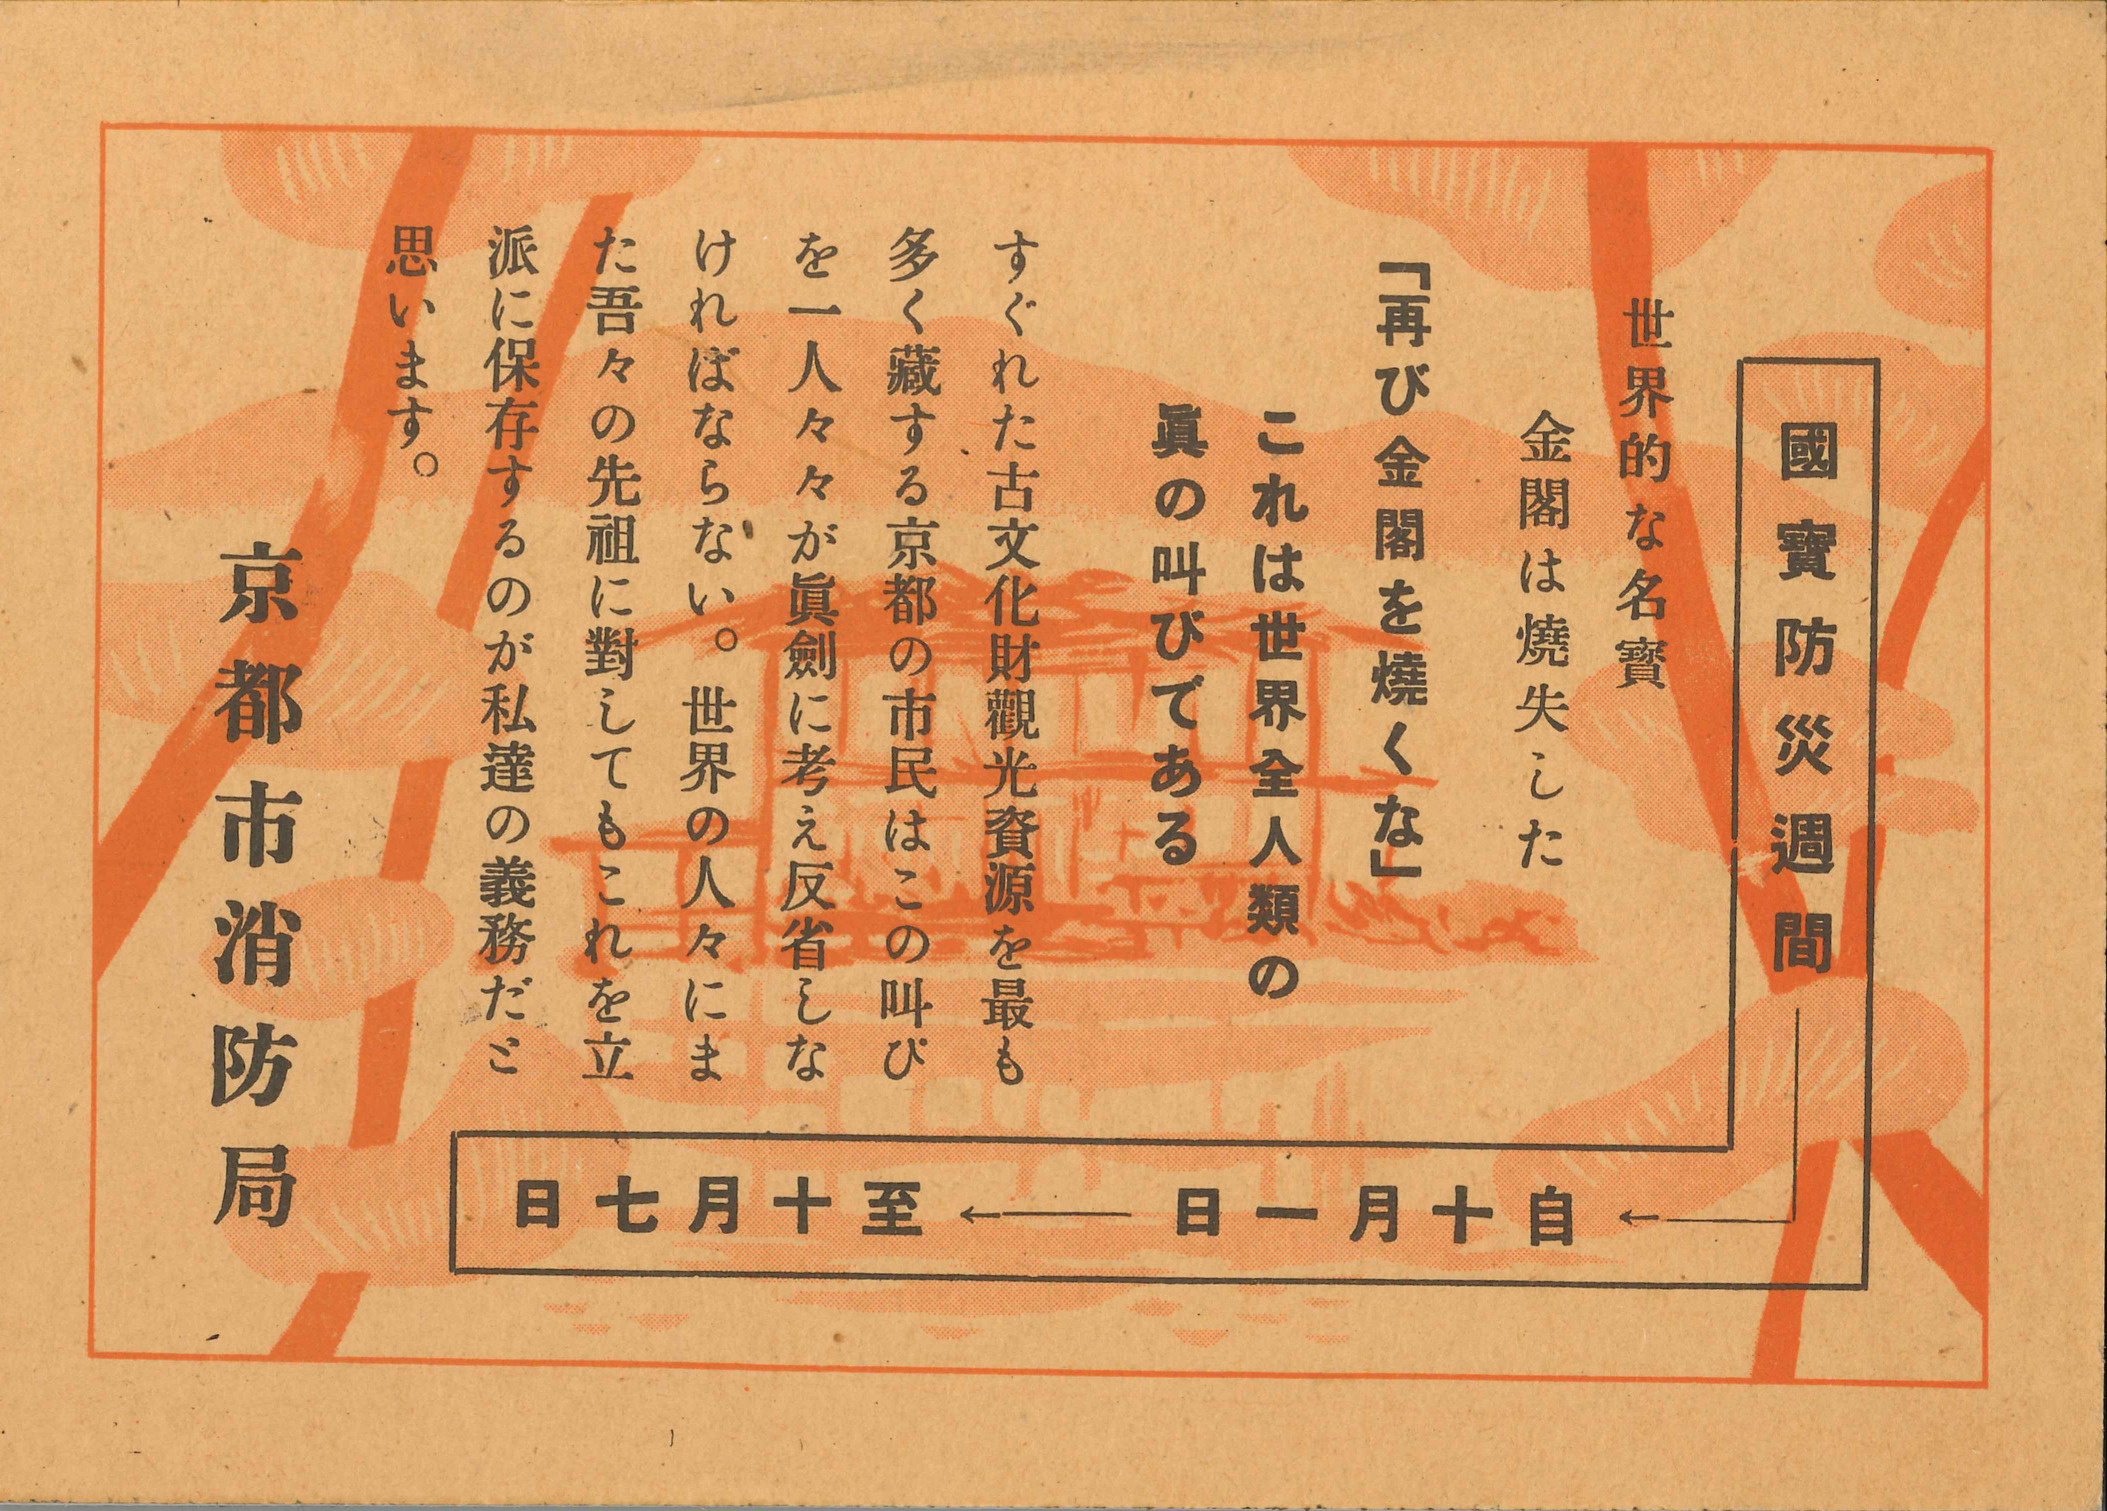 國寳防災週間
自十月一日
至十月七日
世界的な名寳
金閣は燒失した
「再び金閣を燒くな」
これは世界全人類の
眞の叫びである
すぐれた古文化財觀光資源を最も
多く藏する京都の市民はこの叫び
を一人々々が眞劍に考え反省しな
ければならない。世界の人々にま
た吾々の先祖に對してもこれを立
派に保存するのが私達の義務だと
思います。
京都市消防局